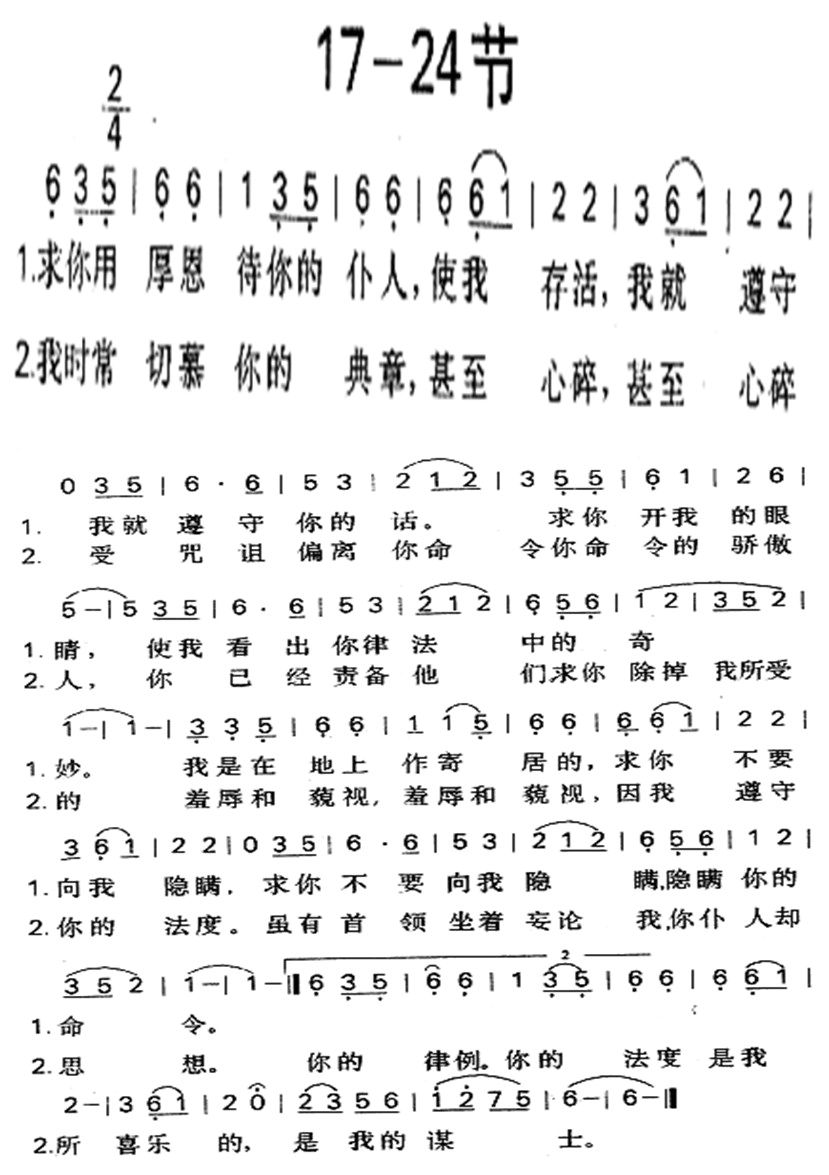 17-24节
2/4
6 3 5 | 6 6 | 1 3 5 | 6 6 | 6 6 1 | 2 2 | 3 6 1 | 2 2 |
1.求你用 厚恩 待你的 仆人,使我 存活,我就 遵守
2.我时常 切慕 你的 典章,甚至 心碎,甚至 心碎
0 3 5 | 6 · 6 | 5 3 | 2 1 2 | 3 5 5 | 6 1 | 2 6 |
1. 我就 遵 守 你的 话。 求你 开我 的眼
2. 受 咒 诅 偏离 你命 令你命 令的 骄傲
5 - | 5 3 5 | 6 · 6 | 5 3 | 2 1 2 | 6 5 6 | 1 2 | 3 5 2 |
1.睛, 使我 看 出 你律 法 中的 奇
2.人, 你 已 经 责备 他 们,求你 除掉 我所受
1 - | 1 - | 3 3 5 | 6 6 | 1 1 5 | 6 6 | 6 6 1 | 2 2 |
1.妙。 我是在 地上 作寄 居的,求你 不要
2.的 羞辱和 藐视,羞辱和 藐视,因我 遵守
3 6 1 | 2 2 | 0 3 5 | 6 · 6 | 5 3 | 2 1 2 | 6 5 6 | 1 2 |
1.向我 隐瞒,求你 不 要 向我 隐 瞒,隐瞒 你的
2.你的 法度。虽有 首 领 坐着 妄论 我,你仆 人却
3 5 2 | 1 - | 1 - 6 3 5 | 6 6 | 1 3 5 | 6 6 | 6 6 1 |
2
1.命 令。
2.思 想。 你的 律例。你的 法度 是我
2 - | 3 6 1 | 2 0 | 2 3 5 6 | 1 2 7 5 | 6 - | 6 -
2.所 喜乐 的, 是 我的 谋 士。